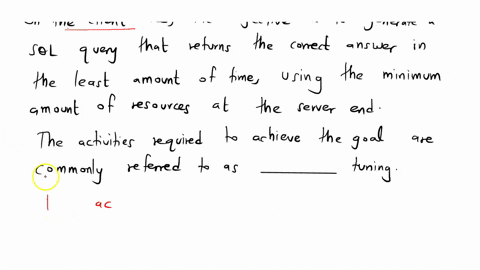 On the client
SQL query that returns the correct answer in
the least amount of time, using the minimum
amount of resources at the server end.
The activities required to achieve the goal are
commonly referred to as ________ tuning.
| ac